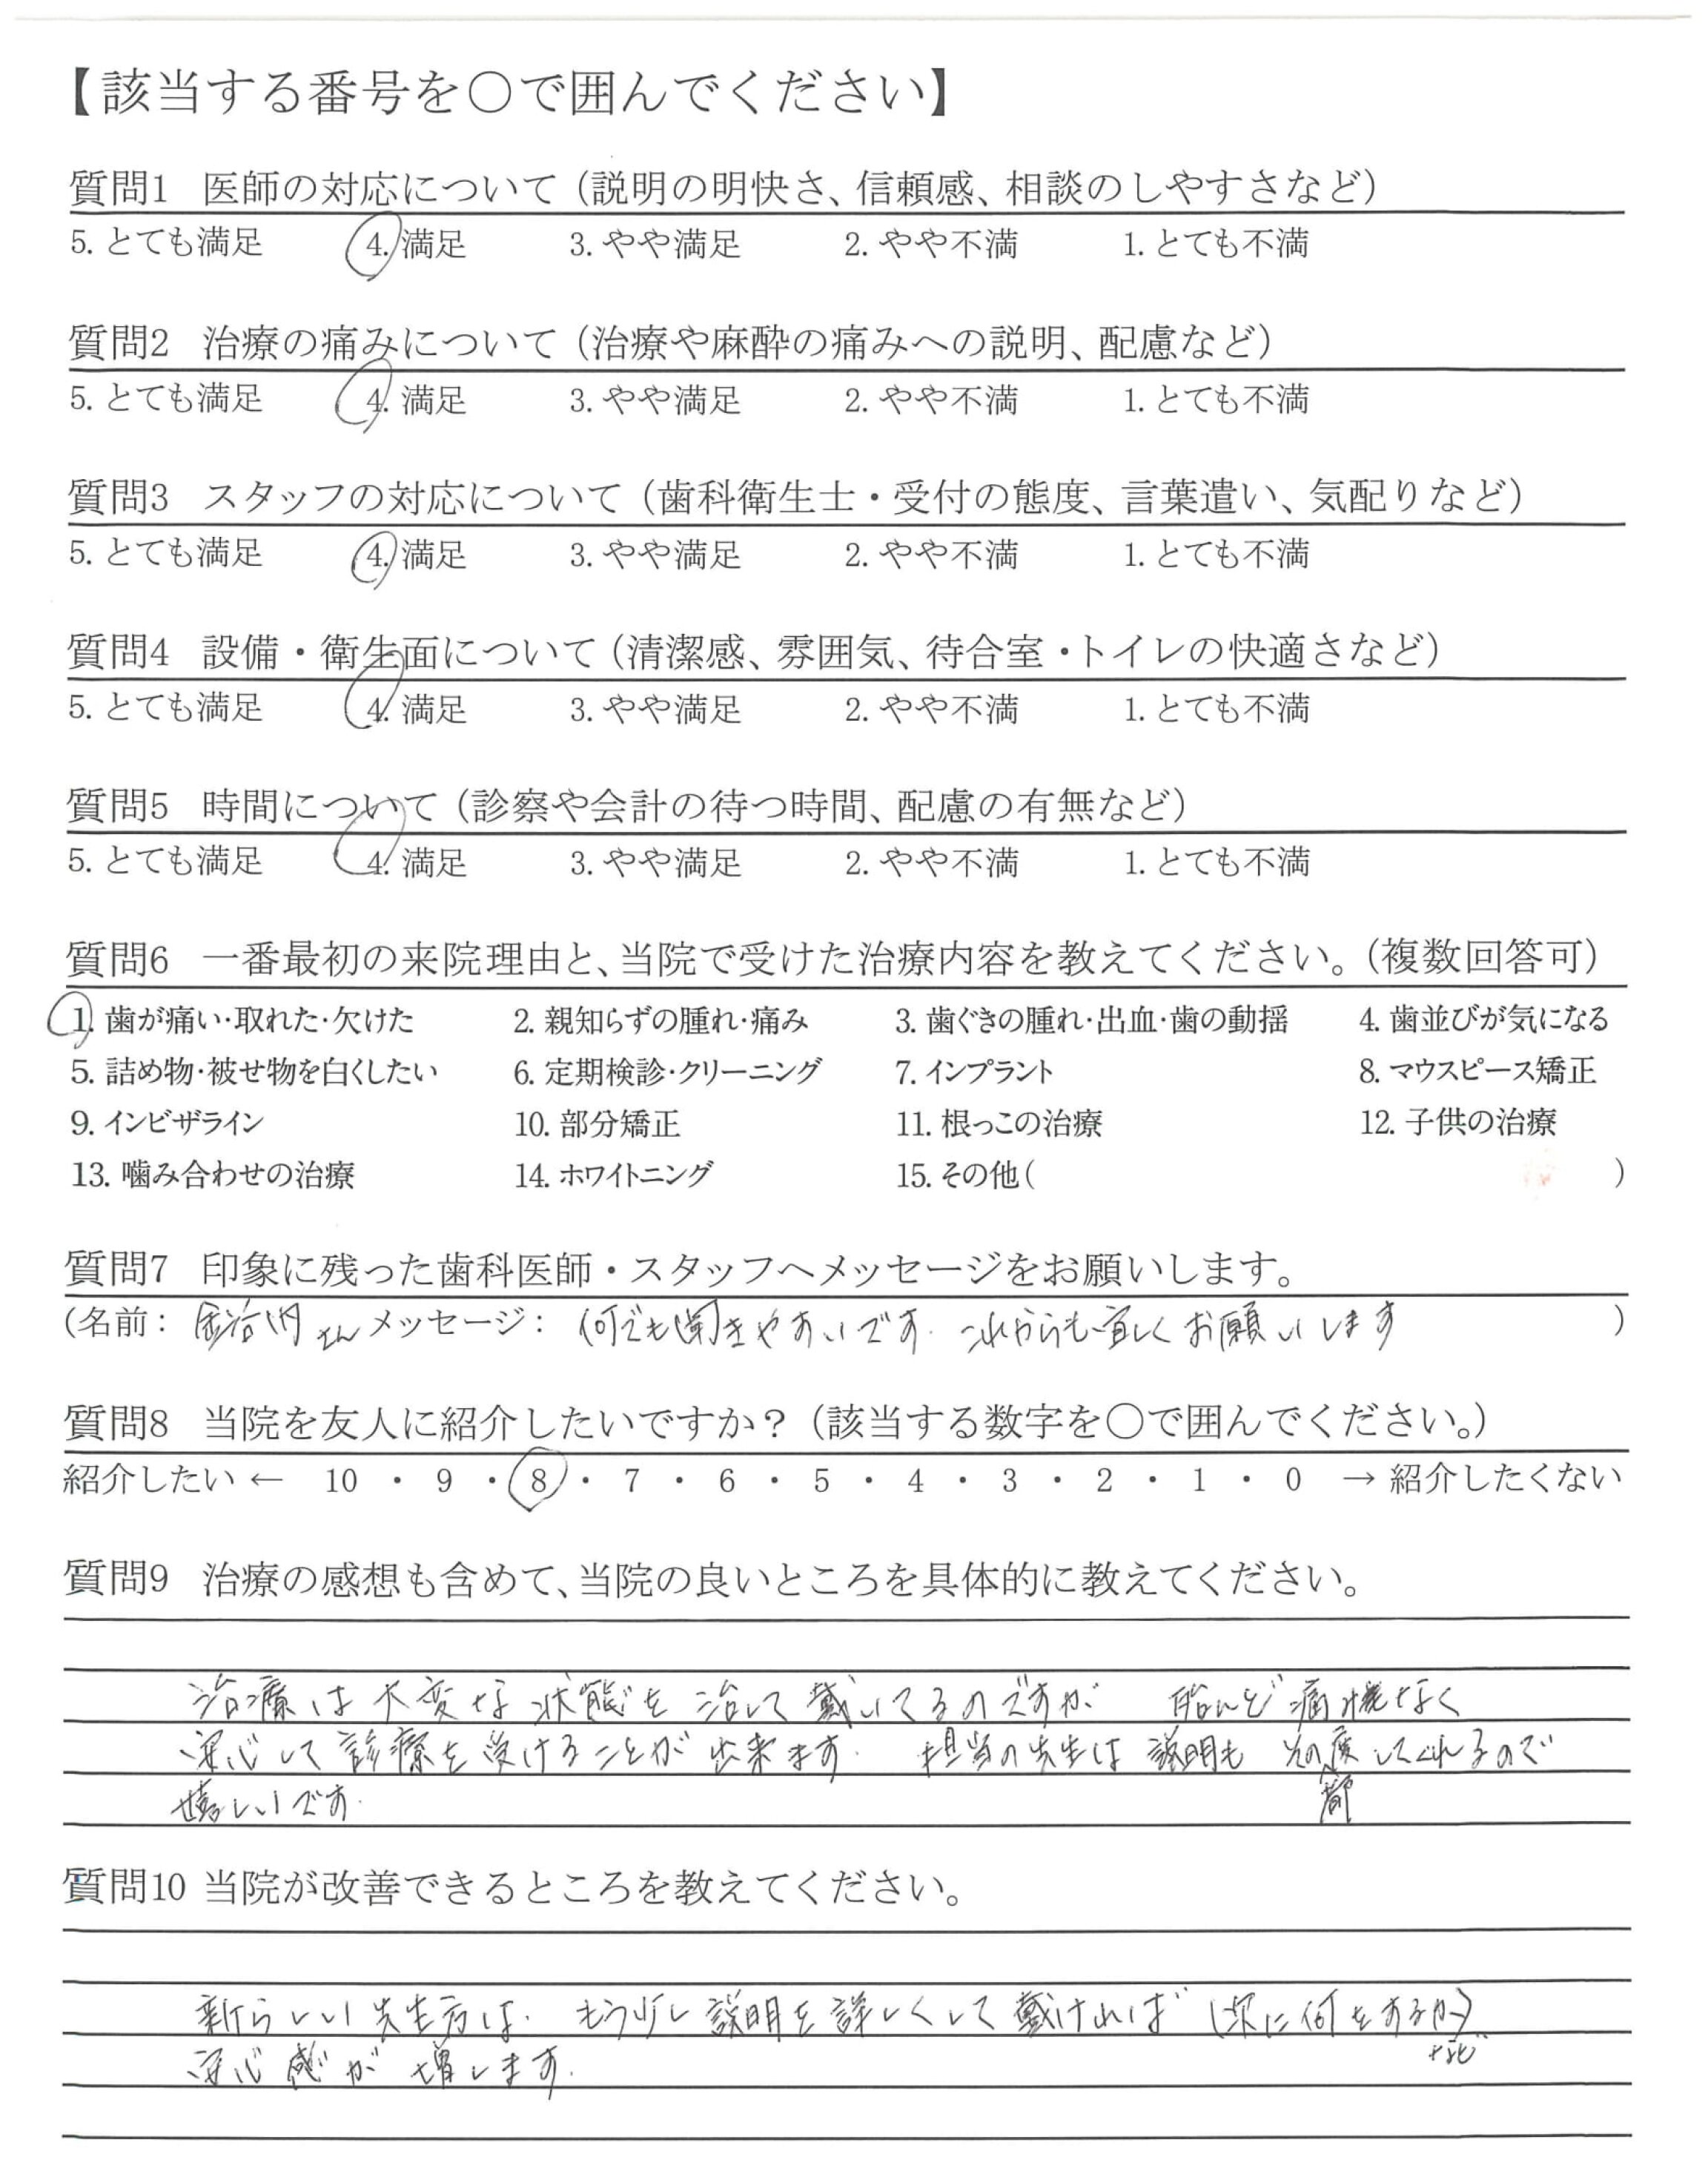 【該当する番号を○で囲んでください】
質問1 医師の対応について（説明の明快さ、信頼感、相談のしやすさなど）
5. とても満足 4. 満足 3. やや満足 2. やや不満 1. とても不満
質問2 治療の痛みについて（治療や麻酔の痛みへの説明、配慮など）
5. とても満足 4. 満足 3. やや満足 2. やや不満 1. とても不満
質問3 スタッフの対応について（歯科衛生士・受付の態度、言葉遣い、気配りなど）
5. とても満足 4. 満足 3. やや満足 2. やや不満 1. とても不満
質問4 設備・衛生面について（清潔感、雰囲気、待合室・トイレの快適さなど）
5. とても満足 4. 満足 3. やや満足 2. やや不満 1. とても不満
質問5 時間について（診察や会計の待つ時間、配慮の有無など）
5. とても満足 4. 満足 3. やや満足 2. やや不満 1. とても不満
質問6 一番最初の来院理由と、当院で受けた治療内容を教えてください。（複数回答可）
1. 歯が痛い・取れた・欠けた 2. 親知らずの腫れ・痛み 3. 歯ぐきの腫れ・出血・歯の動揺 4. 歯並びが気になる
5. 詰め物・被せ物を白くしたい 6. 定期検診・クリーニング 7. インプラント 8. マウスピース矯正
9. インビザライン 10. 部分矯正 11. 根っこの治療 12. 子供の治療
13. 噛み合わせの治療 14. ホワイトニング 15. その他（ ）
質問7 印象に残った歯科医師・スタッフへメッセージをお願いします。
（名前： さん メッセージ： 何でも聞きやすいです. これからも宜しくお願いします ）
質問8 当院を友人に紹介したいですか？（該当する数字を○で囲んでください。）
紹介したい ← 10 ・ 9 ・ 8 ・ 7 ・ 6 ・ 5 ・ 4 ・ 3 ・ 2 ・ 1 ・ 0 → 紹介したくない
質問9 治療の感想も含めて、当院の良いところを具体的に教えてください。
治療は大変な状態を治して戴いてるのですが 殆んど なく
安心して診療を受けることが出来ます. 担当の先生は説明もその都度してくれるので
嬉しいです.
質問10 当院が改善できるところを教えてください。
新らしい先生方は. もう少し説明を詳しくして戴ければ（次に何をするか）など
安心感が増します.